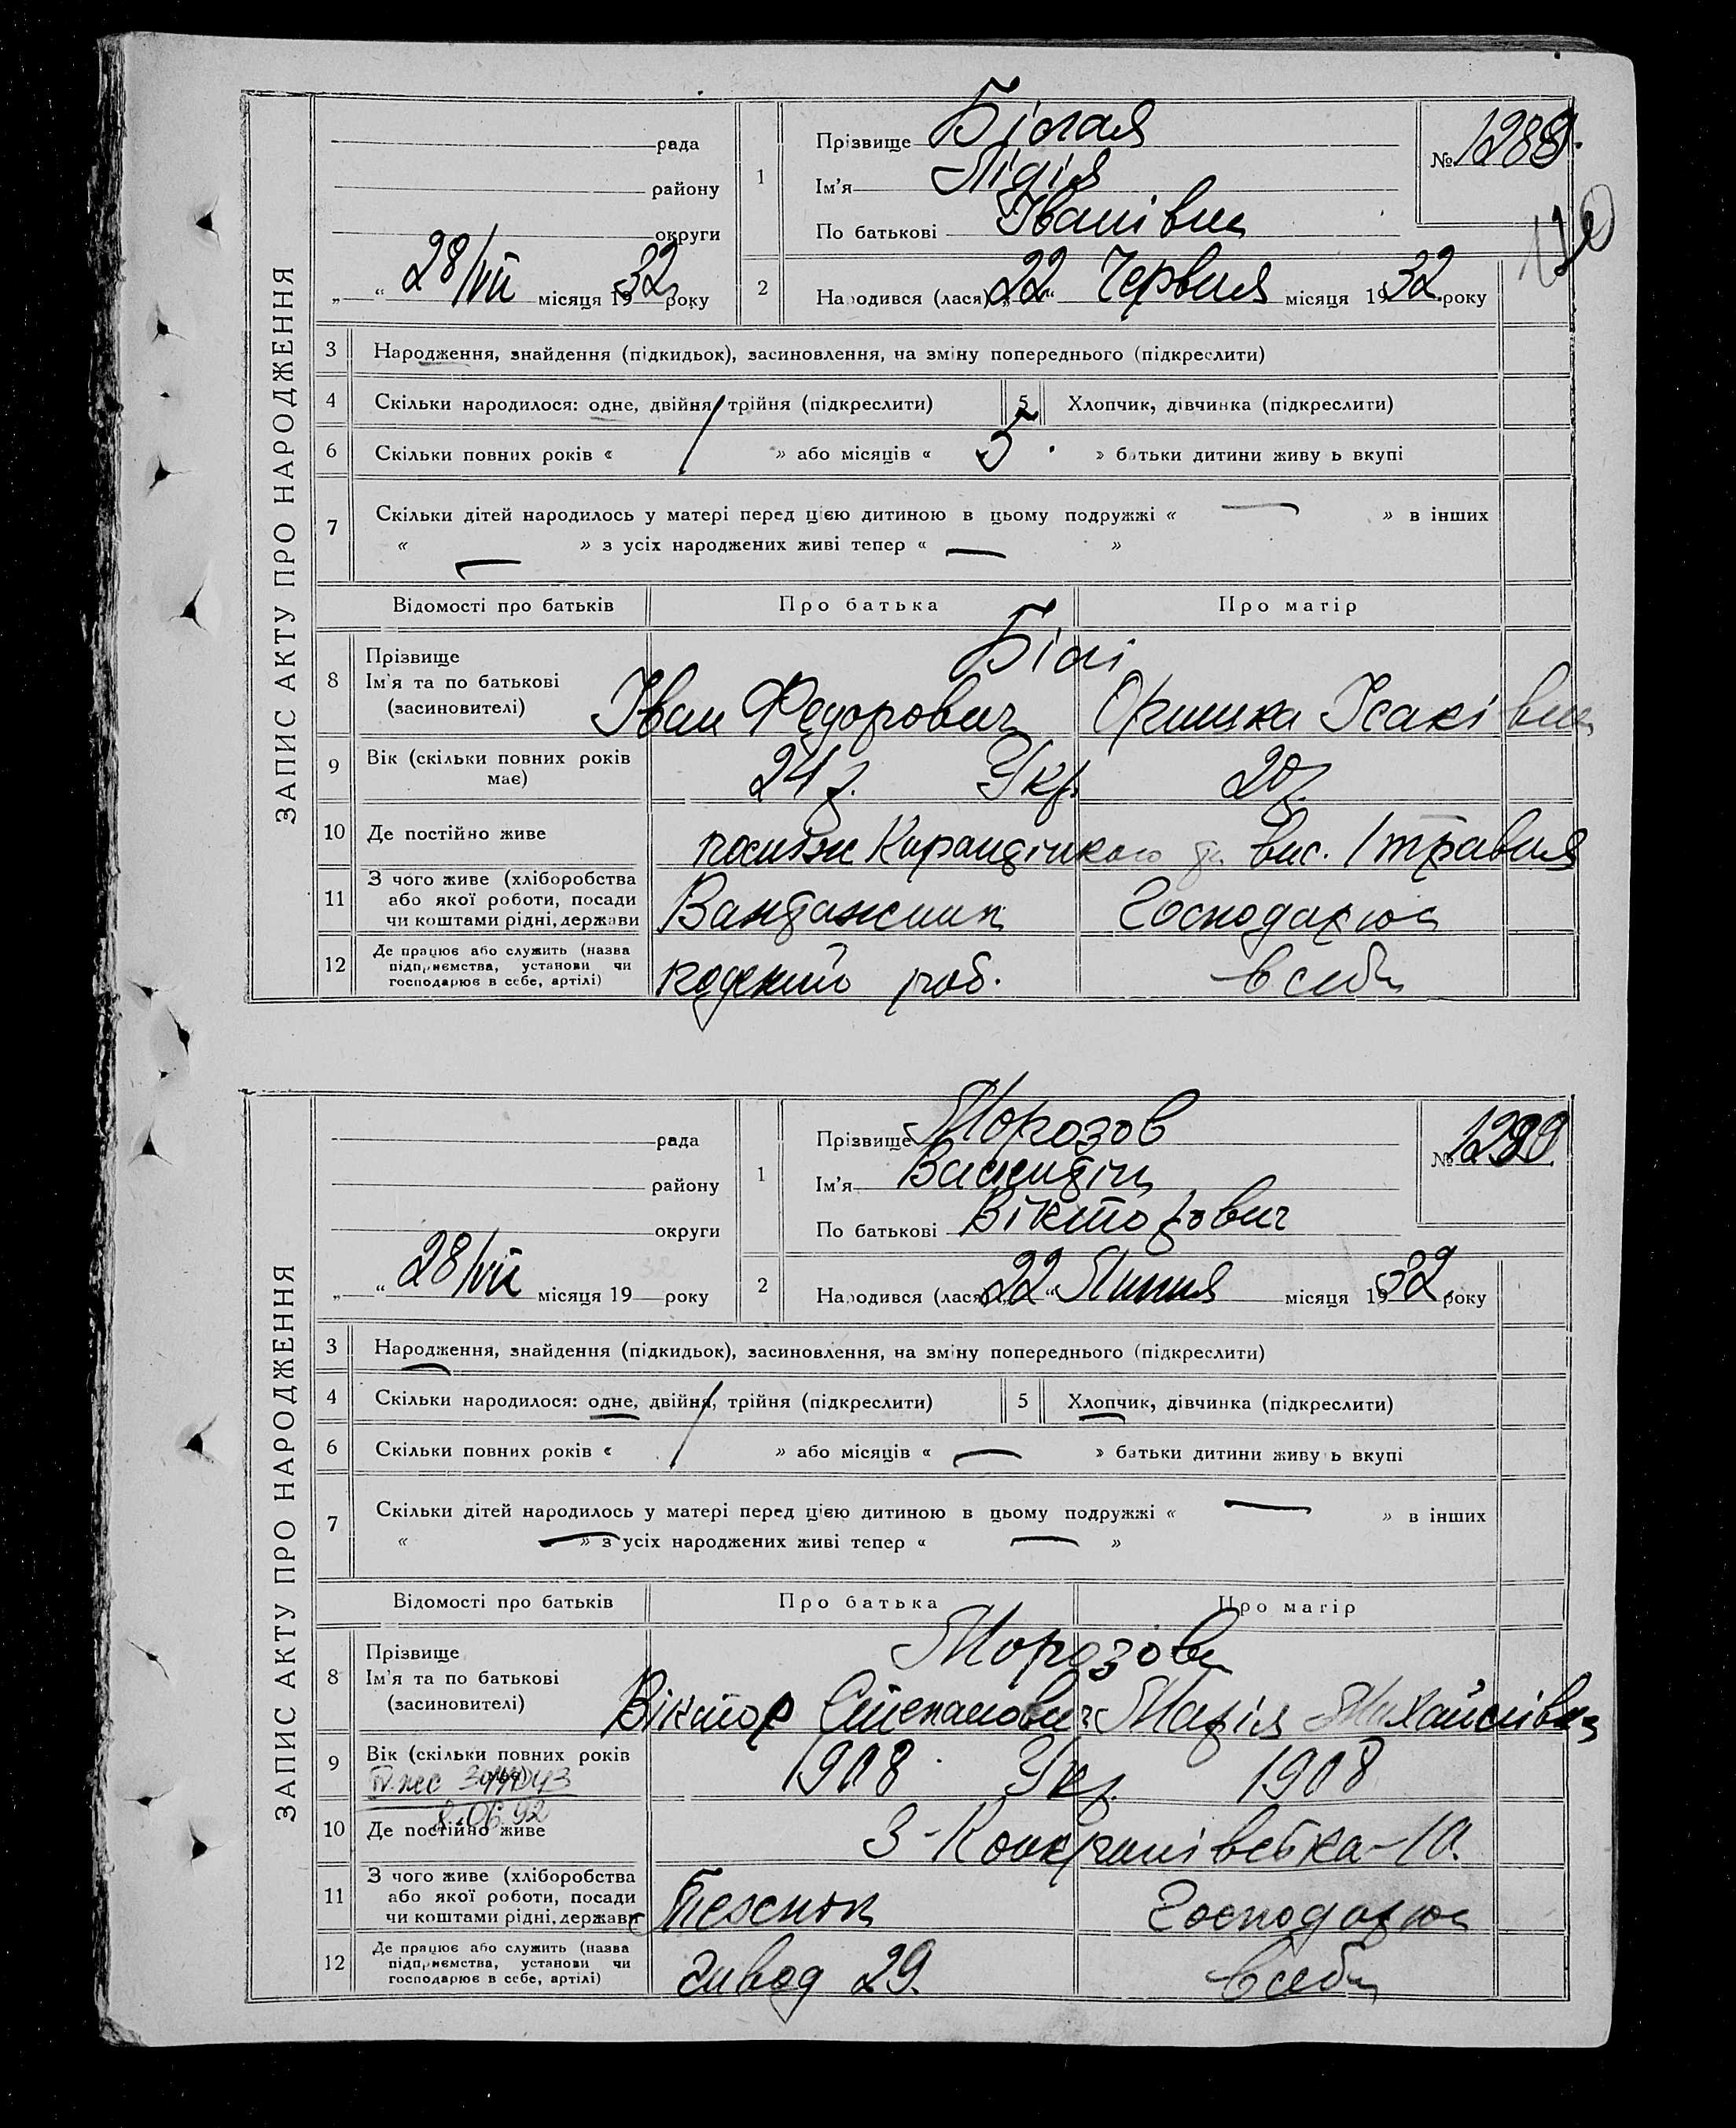 ЗАПИС АКТУ ПРО НАРОДЖЕННЯ
рада
району
округи
„ “ 28/VII місяця 1932 року
1
Прізвище Білая
Ім'я Лідія
По батькові Іванівна
№ 1288.
2
Народився (лася) „22“ Червня місяця 1932 року
3 Народження, знайдення (підкидьок), засиновлення, на зміну попереднього (підкреслити)
4 Скільки народилося: одне, двійня, трійня (підкреслити) 5 Хлопчик, дівчинка (підкреслити)
6 Скільки повних років « » або місяців « 5 » батьки дитини живуть вкупі
7 Скільки дітей народилось у матері перед цією дитиною в цьому подружжі « — » в інших
« — » з усіх народжених живі тепер « — »
Відомості про батьків Про батька Про матір
8 Прізвище
Ім'я та по батькові
(засиновителі)
Білі
Іван Федорович Оришка Ісаківна
9 Вік (скільки повних років
має)
24 р. Укр. 20 р.
10 Де постійно живе
вис. 1 травня
11 З чого живе (хліборобства
або якої роботи, посади
чи коштами рідні, держави
Вантажник Господарює
12 Де працює або служить (назва
підприємства, установи чи
господарює в себе, артілі)
роб. в себе
ЗАПИС АКТУ ПРО НАРОДЖЕННЯ
рада
району
округи
„ “ 28/VII місяця 19 32 року
1
Прізвище Морозов
Ім'я Валентін
По батькові Вікторович
№
2
Народився (лася) „22“ Липня місяця 1932 року
3 Народження, знайдення (підкидьок), засиновлення, на зміну попереднього (підкреслити)
4 Скільки народилося: одне, двійня, трійня (підкреслити) 5 Хлопчик, дівчинка (підкреслити)
6 Скільки повних років « » або місяців « — » батьки дитини живуть вкупі
7 Скільки дітей народилось у матері перед цією дитиною в цьому подружжі « — » в інших
« — » з усіх народжених живі тепер « — »
Відомості про батьків Про батька Про матір
8 Прізвище
Ім'я та по батькові
(засиновителі)
Морозови
Віктор Степанович Марія Михайлівна
9 Вік (скільки повних років
має)
1908 Укр. 1908
8.06.92
10 Де постійно живе
11 З чого живе (хліборобства
або якої роботи, посади
чи коштами рідні, держави
Технік Господарює
12 Де працює або служить (назва
підприємства, установи чи
господарює в себе, артілі)
завод 29. в себе